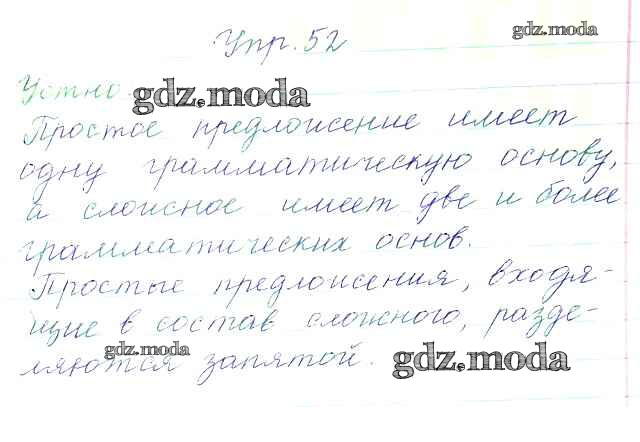 Упр. 52
gdz.moda
Устно.
gdz.moda
Простое предложение имеет
одну грамматическую основу,
а сложное имеет две и более
грамматических основ.
Простые предложения, входя-
щие в состав сложного, разде-
ляются запятой.
gdz.moda
gdz.moda